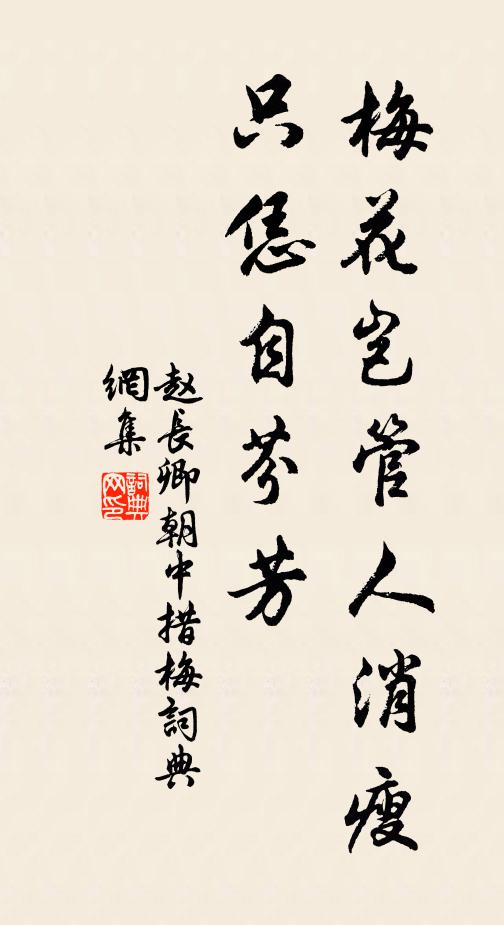 梅花豈管人消瘦
只恁自芬芳
赵長卿朝中措梅詞典
網集
詞典
网印